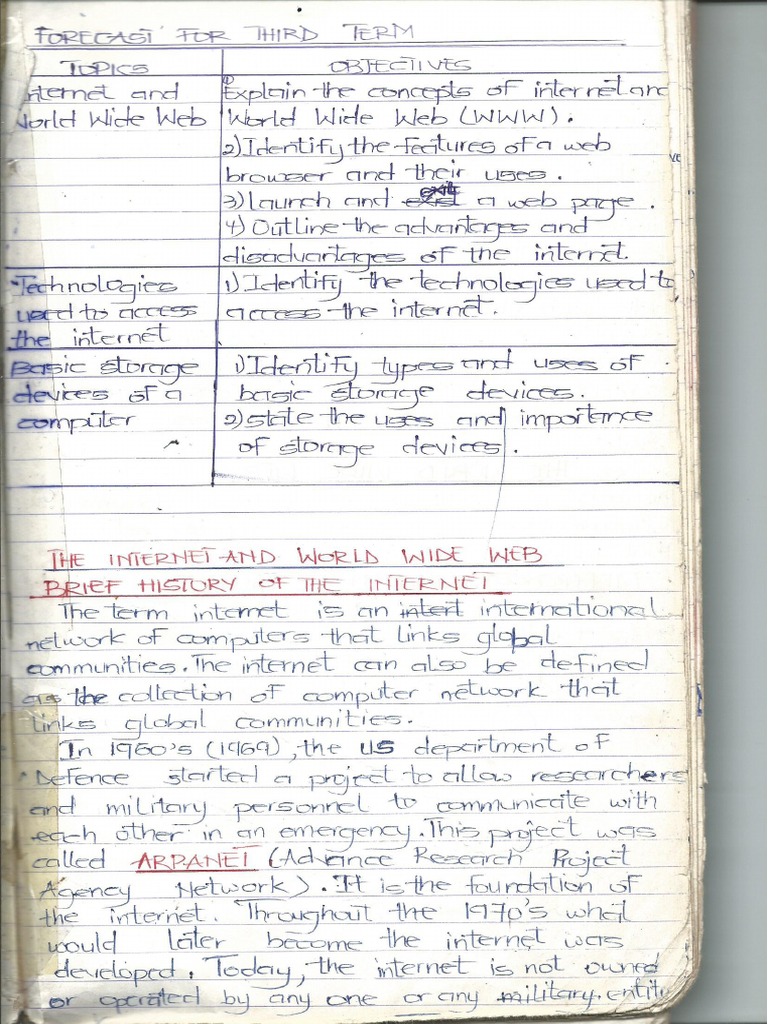 FORECAST FOR THIRD TERM
TOPICS OBJECTIVES
nternet and 1) Explain the concepts of internet an
World Wide Web World Wide Web (WWW).
2) Identify the features of a web
browser and their uses.
3) launch and exit a web page.
4) Outline the advantages and
disadvantages of the internet.
Technologies 1) Identify the technologies used to
used to access access the internet.
the internet
Basic storage 1) Identify types and uses of
devices of a basic storage devices.
computer 2) state the uses and importance
of storage devices.
THE INTERNET AND WORLD WIDE WEB
BRIEF HISTORY OF THE INTERNET
The term internet is an intert international
network of computers that links global
communities. The internet can also be defined
as the collection of computer network that
links global communities.
In 1960's (1969), the US department of
Defence started a project to allow researchers
and military personnel to communicate with
each other in an emergency. This project was
called ARPANET (Advance Research Project
Agency Network). It is the foundation of
the internet. Throughout the 1970's what
would later become the internet was
developed. Today, the internet is not owned
or operated by any one or any military entit